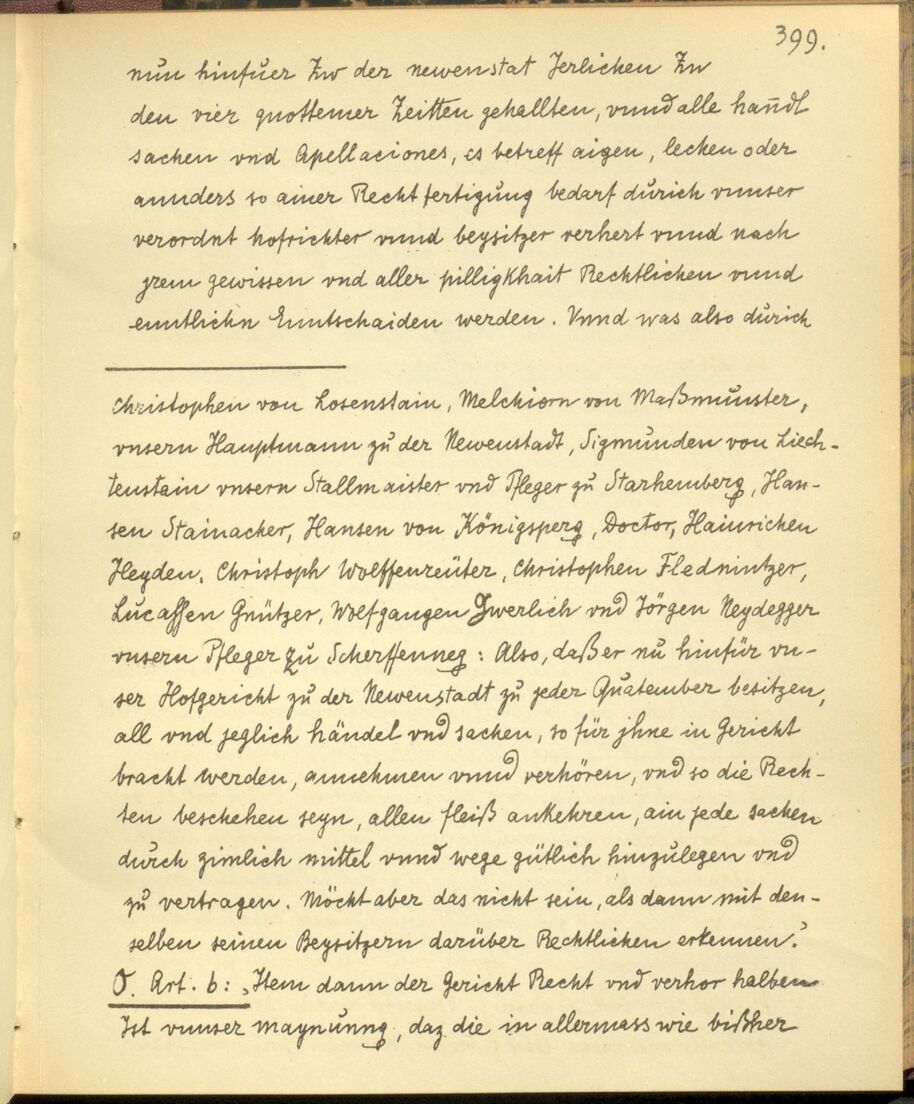 399.
nun hinfuer Zw der newenstat Jerlichen Zu
den vier quottemer Zeitten gehallten, vnnd alle hann̄dl
sachen vnd Apellaciones, es betreff aigen, lechen oder
annders so ainer Rechtfertigung bedarf durich vnnser
verordnt hofrichter vnnd beysitzer verhert vnnd nach
jrem gewissen vnd aller pilligkhait Rechtlichen vnnd
enntlichn Enntschaiden werden. Vnnd was also durich
Christophen von Losenstain, Melchiorn von Maßmünster,
vnsern Hauptmann zu der Newenstadt, Sigmunden von Liech-
tenstain vnsern Stallmaister vnd Pfleger zu Starhemberg, Han-
sen Stainacher, Hansen von Königsperg, Doctor, Hainrichen
Heyden, Christoph Wolffenreüter, Christophen Flednintzer,
Lucassen Gnützer, Wolfgangen Zwerlich vnd Jörgen Neydegger
vnsern Pfleger zu Scherffenneg: Also, daß er nu hinfür vn-
ser Hofgericht zu der Newenstadt zu jeder Quatember besitzen,
all vnd jeglich händel vnd sachen, so für jhne in Gericht
bracht werden, annehmen vnnd verhören, vnd so die Rech-
ten beschehen seyn, allen fleiß ankehren, ain jede sachen
durch zimlich mittel vnnd wege gütlich hinzulegen vnd
zu vertragen. Möcht aber das nicht sein, als dann mit den-
selben seinen Beysitzern darüber Rechtlichen erkennen."
O. Art. 6: „Item dann der Gericht Recht vnd verhor halben
Ist vnnser maynunng, daz die in allermass wie bißher